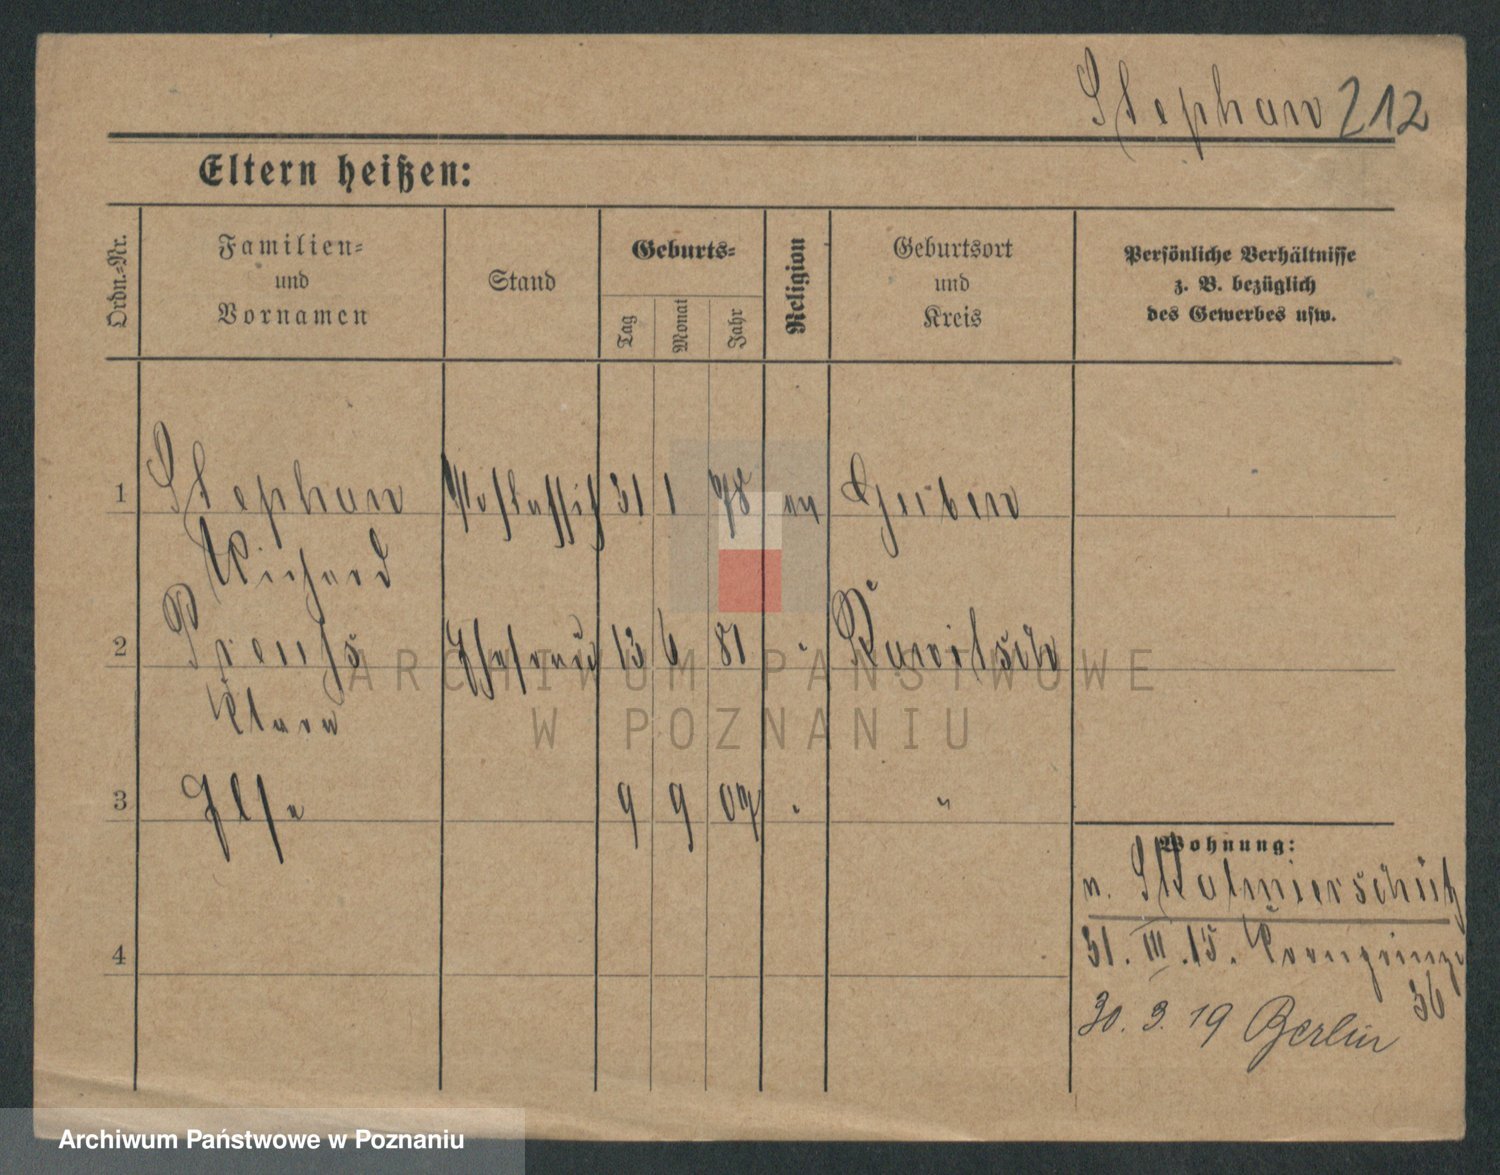 Stephan 212
Eltern heißen:
Ordn.-Nr.
Familien-
und
Vornamen
Stand
Geburts-
Tag
Monat
Jahr
Religion
Geburtsort
und
Kreis
Persönliche Verhältnisse
z. B. bezüglich
des Gewerbes usw.
1 Stephan 31 1 78 ev Guben
Richard
2 Preuß Ehefrau 13 6 81 " Rawitsch
Klara
3 Ilse 9 9 07 " "
4
Wohnung:
n. Skalmierschütz
31. III. 15. Kronprinz
36
30. 3. 19 Berlin
ARCHIWUM PAŃSTWOWE
W POZNANIU
Archiwum Państwowe w Poznaniu